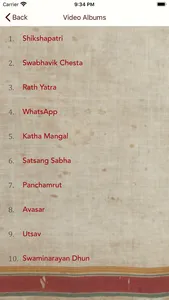 9:34 PM
Back
Video Albums
1. Shikshapatri
2. Swabhavik Chesta
3. Rath Yatra
4. WhatsApp
5. Katha Mangal
6. Satsang Sabha
7. Panchamrut
8. Avasar
9. Utsav
10. Swaminarayan Dhun